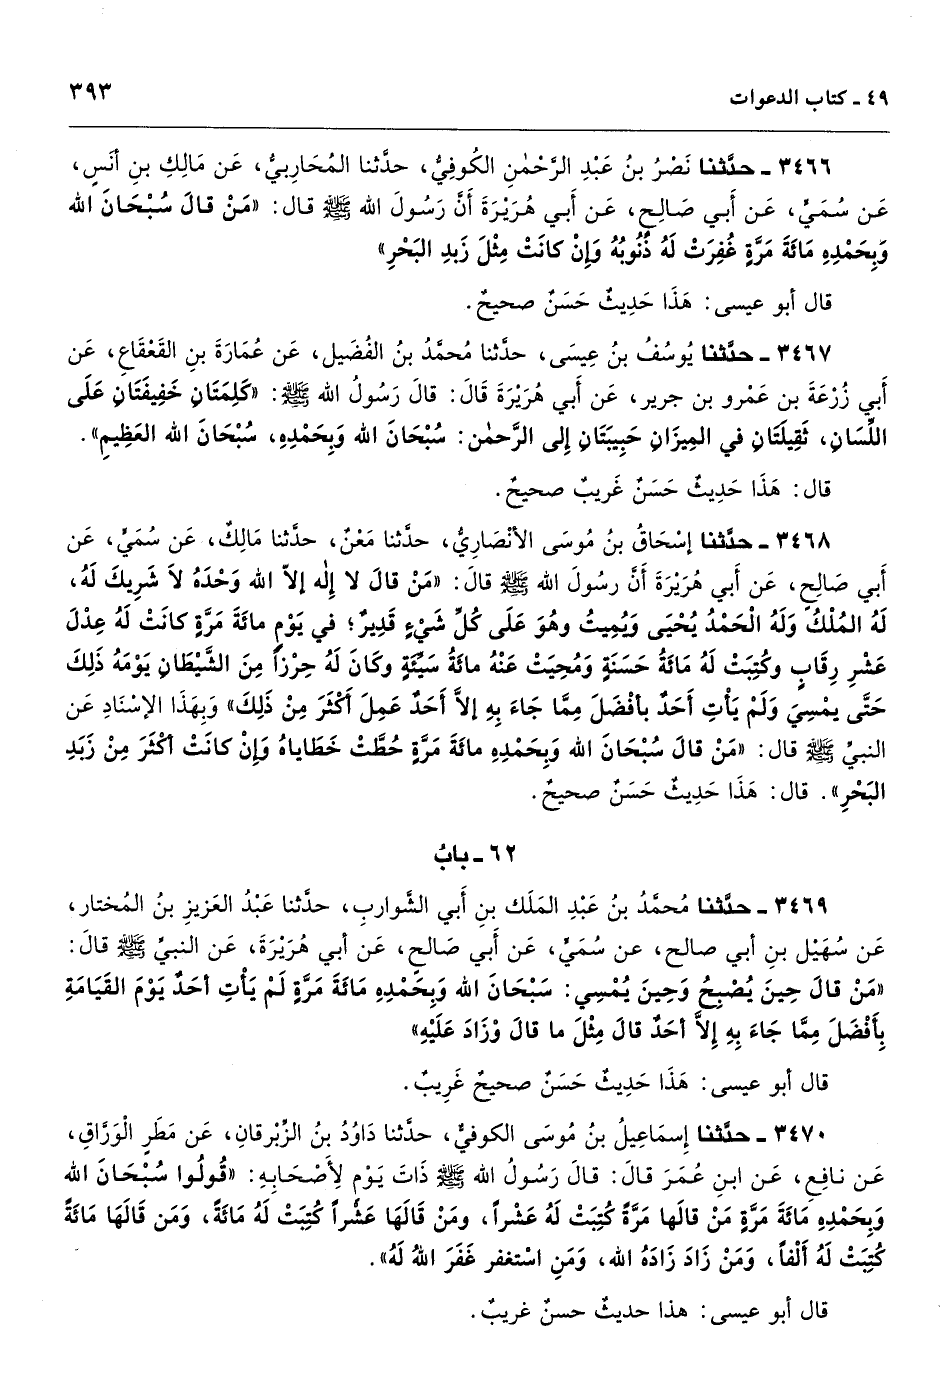 ٤٩ ـ كتاب الدعوات ٣٩٣
٣٤٦٦ ـ حدَّثنا نَصْرُ بنُ عَبْدِ الرَّحْمٰنِ الكُوفِيُّ، حدَّثنا المُحَارِبيُّ، عَن مَالِكِ بنِ أنَسٍ،
عَن سُمَيٍّ، عَن أَبي صَالِحٍ، عَن أبي هُرَيْرَةَ أَنَّ رَسُولَ الله ﷺ قال: «مَنْ قالَ سُبْحَانَ الله
وَبِحَمْدِهِ مَائَةَ مَرَّةٍ غُفِرَتْ لَهُ ذُنُوبُهُ وَإِنْ كانَتْ مِثْلَ زَبَدِ البَحْرِ»
قال أبو عيسى: هَذَا حَدِيثٌ حَسَنٌ صحيحٌ.
٣٤٦٧ ـ حدَّثنا يُوسُفُ بنُ عِيسَى، حدَّثنا مُحمَّدُ بنُ الفُضَيل، عَن عُمَارَةَ بنِ القَعْقَاعِ، عَن
أَبي زُرْعَةَ بن عَمْرو بن جرير، عَن أَبي هُرَيْرَةَ قَالَ: قالَ رَسُولُ الله ﷺ: «كَلِمَتَانِ خَفِيفَتَانِ عَلَى
اللِّسَانِ، ثَقِيلَتَانِ في المِيزَانِ حَبِيبَتَانِ إلى الرَّحمٰن: سُبْحَانَ الله وَبِحَمْدِهِ، سُبْحَانَ الله العَظِيمِ».
قال: هَذَا حَدِيثٌ حَسَنٌ غَريبٌ صحيحٌ.
٣٤٦٨ ـ حدَّثنا إسْحَاقُ بنُ مُوسَى الأنْصَارِيُّ، حدَّثنا مَعْنٌ، حدَّثنا مَالِكٌ، عَن سُمَيٍّ، عَن
أَبي صَالِحٍ، عَن أَبي هُرَيْرَةَ أَنَّ رسُولَ الله ﷺ قالَ: «مَنْ قالَ لا إِلٰه إلاّ الله وَحْدَهُ لاَ شَرِيكَ لَهُ،
لَهُ المُلْكُ وَلَهُ الْحَمْدُ يُحْيَى وَيُمِيتُ وهُوَ عَلَى كُلِّ شَيْءٍ قَدِيرٌ؛ في يَوْمٍ مائةَ مَرَّةٍ كانَتْ لَهُ عِدْلَ
عَشْرِ رِقَابٍ وكُتِبَتْ لَهُ مَائَةُ حَسَنَةٍ وَمُحِيَتْ عَنْهُ مائَةُ سَيِّئَةٍ وكَانَ لَهُ حِرْزاً مِنَ الشَّيْطَانِ يَوْمَهُ ذَلِكَ
حَتَّى يمْسِيَ وَلَمْ يَأْتِ أَحَدٌ بأفْضَلَ مِمَّا جَاءَ بِهِ إلاَّ أَحَدٌ عَمِلَ أَكْثَرَ مِنْ ذَلِكَ» وَبِهَذَا الإسْنَادِ عَن
النبيِّ ﷺ قال: «مَنْ قالَ سُبْحَانَ الله وَبِحَمْدِهِ مائَةَ مَرَّةٍ حُطَّتْ خَطَاياهُ وَإِنْ كانَتْ أكْثَرَ مِنْ زَبَدِ
البَحْرِ». قال: هَذَا حَدِيثٌ حَسَنٌ صحيحٌ.
٦٢ ـ بابُ
٣٤٦٩ ـ حدَّثنا مُحمَّدُ بنُ عَبدِ المَلَك بنِ أَبي الشَّواربِ، حدَّثنا عَبْدُ العَزيزِ بنُ المُختار،
عَن سُهَيْل بنِ أبي صالح، عن سُمَيٍّ، عَن أَبي صَالحٍ، عَن أبي هُرَيْرَةَ، عَن النبيِّ ﷺ قالَ:
«مَنْ قالَ حِينَ يُصْبِحُ وَحِينَ يُمْسِي: سَبْحَانَ الله وَبِحَمْدِهِ مَائَةَ مَرَّةٍ لَمْ يَأْتِ أحَدٌ يَوْمَ القَيَامَةِ
بِأَفْضَلَ مِمَّا جَاءَ بِهِ إلاَّ أحَدٌ قالَ مِثْلَ ما قالَ وْزَادَ عَلَيْهِ»
قال أبو عيسى: هَذَا حَدِيثٌ حَسَنٌ صحيحٌ غَرِيبٌ.
٣٤٧٠ ـ حدَّثنا إسمَاعِيلُ بنُ مُوسَى الكوفيُّ، حدَّثنا دَاوُدُ بنُ الزِّبْرقانِ، عَن مَطَرٍ الْوَرَّاقِ،
عَن نافِعٍ، عَن ابنِ عُمَرَ قالَ: قالَ رَسُولُ الله ﷺ ذَاتَ يَوْم لِأَصْحَابِهِ: «قُولُوا سُبْحَانَ الله
وَبِحَمْدِهِ مَائَةَ مَرَّةٍ مَنْ قالَها مَرَّةً كُتِبَتْ لَهُ عَشْراً، ومَنْ قَالَهَا عَشْراً كُتِبَتْ لَهُ مَائَةً، وَمَن قَالَهَا مَائَةً
كُتِبَتْ لَهُ أَلْفاً، وَمَنْ زَادَ زَادَهُ الله، وَمَنِ اسْتغفر غَفَرَ اللهُ لَهُ».
قال أبو عيسى: هذا حديثٌ حسنٌ غريبٌ.